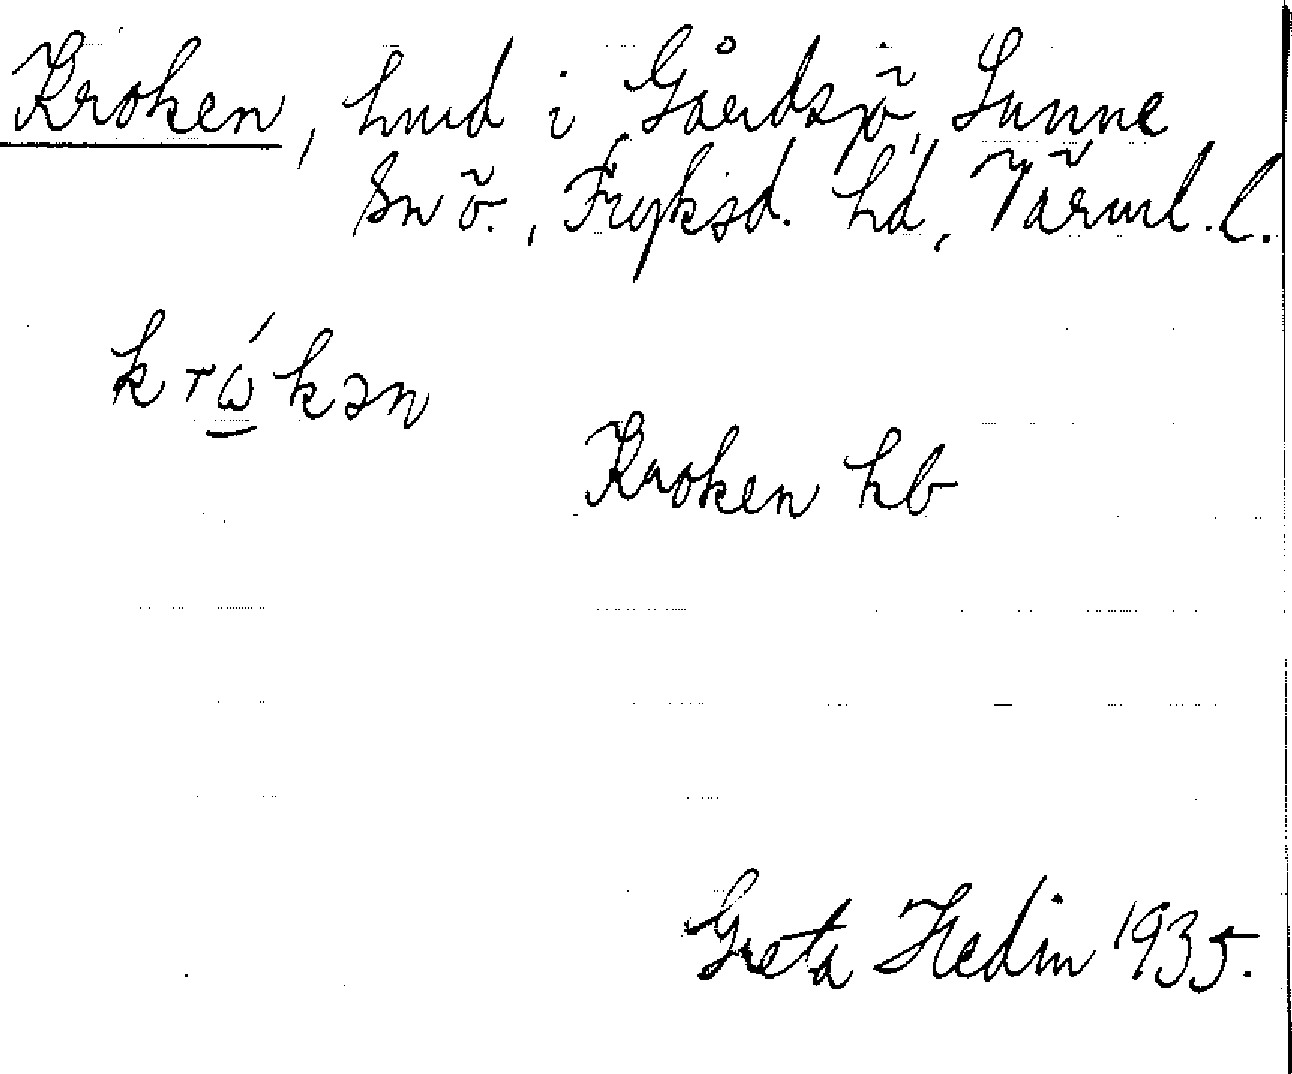 Kroken, hmd i Gårdsjö, Sunne
snö., Fryksd. hd, Värml. l.
krώkən
Kroken hb
Greta Hedin 1935.